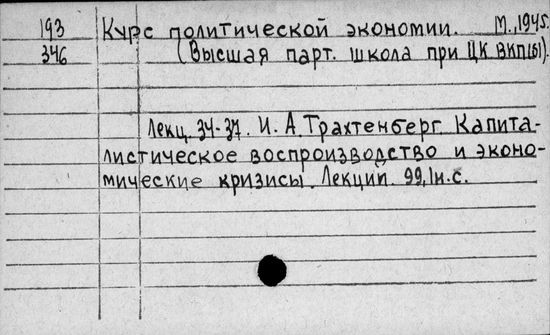 193 Курс политической экономии. М., 1945.
346 (Высшая парт. школа при ЦК ВКП(б)).
Лекц. 34-37. И. А. Трахтенберг. Капита-
листическое воспроизводство и эконо-
мические кризисы. Лекции. 99, 1н.с.